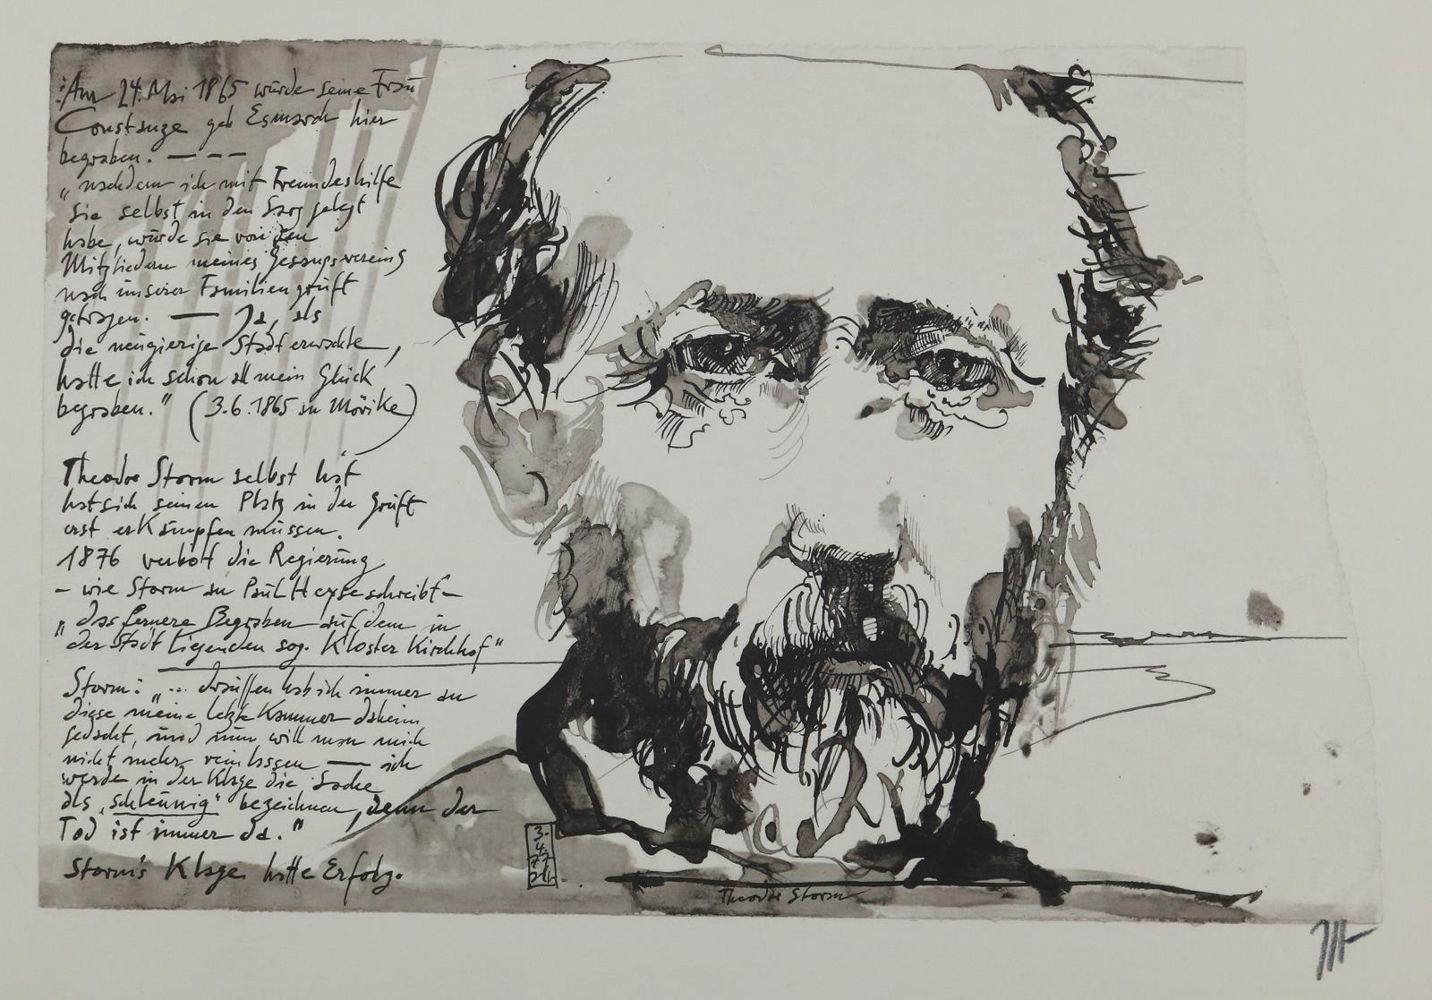 Am 24. Mai 1865 wurde seine Frau
Constanze geb Esmarch hier
begraben. — – –
„nachdem ich mit Freundeshilfe
sie selbst in den Sarg gelegt
habe, wurde sie von den
Mitgliedern meines Gesangsvereins
nach unserer Familiengruft
getragen. — Ja, als
die neugierige Stadt erwachte,
hatte ich schon all mein Glück
begraben." (3.6.1865 an Mörike)
Theodor Storm selbst hat
hat sich seinen Platz in der Gruft
erst erkämpfen müssen.
1876 verbot die Regierung
– wie Storm an Paul Heyse schreibt –
„das fernere Begraben auf dem in
der Stadt liegenden sog. Kloster Kirchhof"
Storm: „... draußen hab ich immer an
diese meine letzte Kammer daheim
gedacht, und nun will man mich
nicht mehr reinlassen — ich
werde in der Klage die Sache
als „schleunig" bezeichnen, denn der
Tod ist immer da."
Storm's Klage hatte Erfolg.
3.
4.
77
Theodor Storm